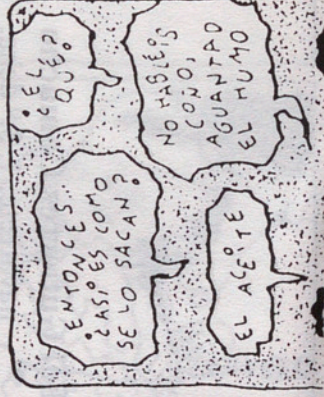 ENTONCES..
¿ASÍ ES COMO
SE LO SACAN?
¿EL
QUÉ?
EL ACEITE
NO HABLÉIS
COÑO,
AGUANTAD
EL HUMO